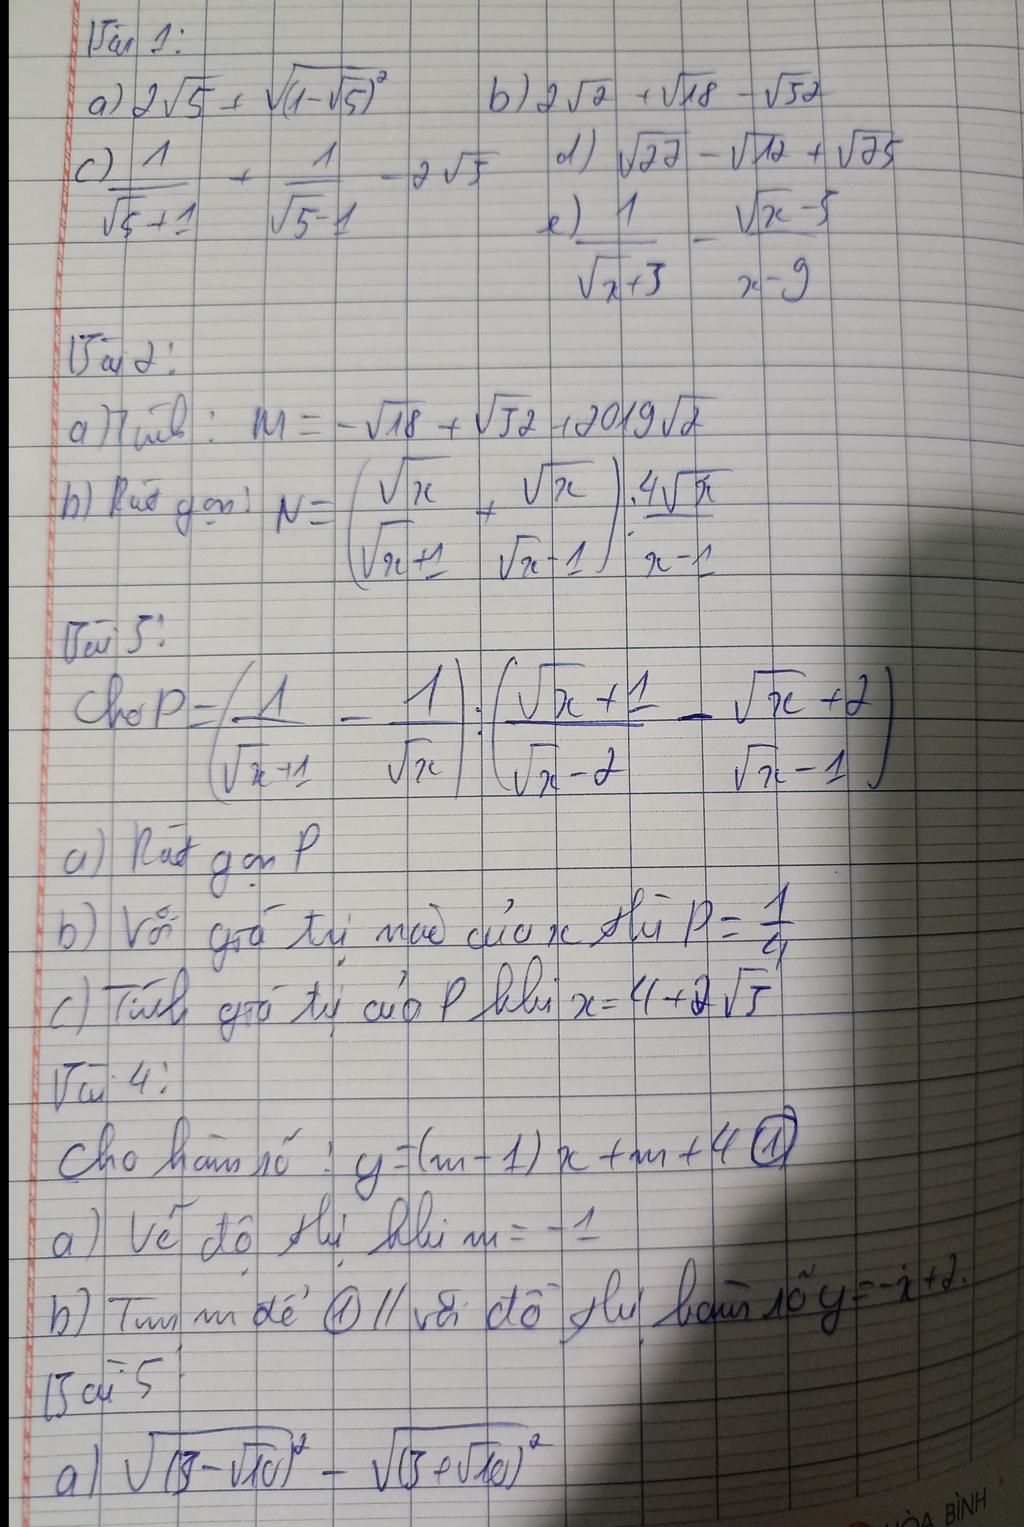 Bài 1:
a) 2√5 + √(1-√5)² b) 2√2 + √18 - √32
c) 1/(√5+1) + 1/(√5-1) - 2√5 d) √27 - √12 + √75
e) 1/(√x+3) - (√x-5)/(x-9)
Bài 2:
a) Tính: M = -√18 + √32 + 2019√2
b) Rút gọn: N = (√x/(√x+1) + √x/(√x-1)) : 4√x/(x-1)
Bài 3:
Cho P = (1/(√x+1) - 1/√x) : ((√x+1)/(√x-2) - (√x+2)/(√x-1))
a) Rút gọn P
b) Với giá trị nào của x thì P = 1/4
c) Tính giá trị của P khi x = 4+2√3
Bài 4:
Cho hàm số: y=(m-1)x+m+4 ①
a) Vẽ đồ thị khi m = -1
b) Tìm m để ① // với đồ thị hàm số y=-x+2.
Bài 5
a) √(3-√10)² - √(3+√10)²
HÒA BÌNH